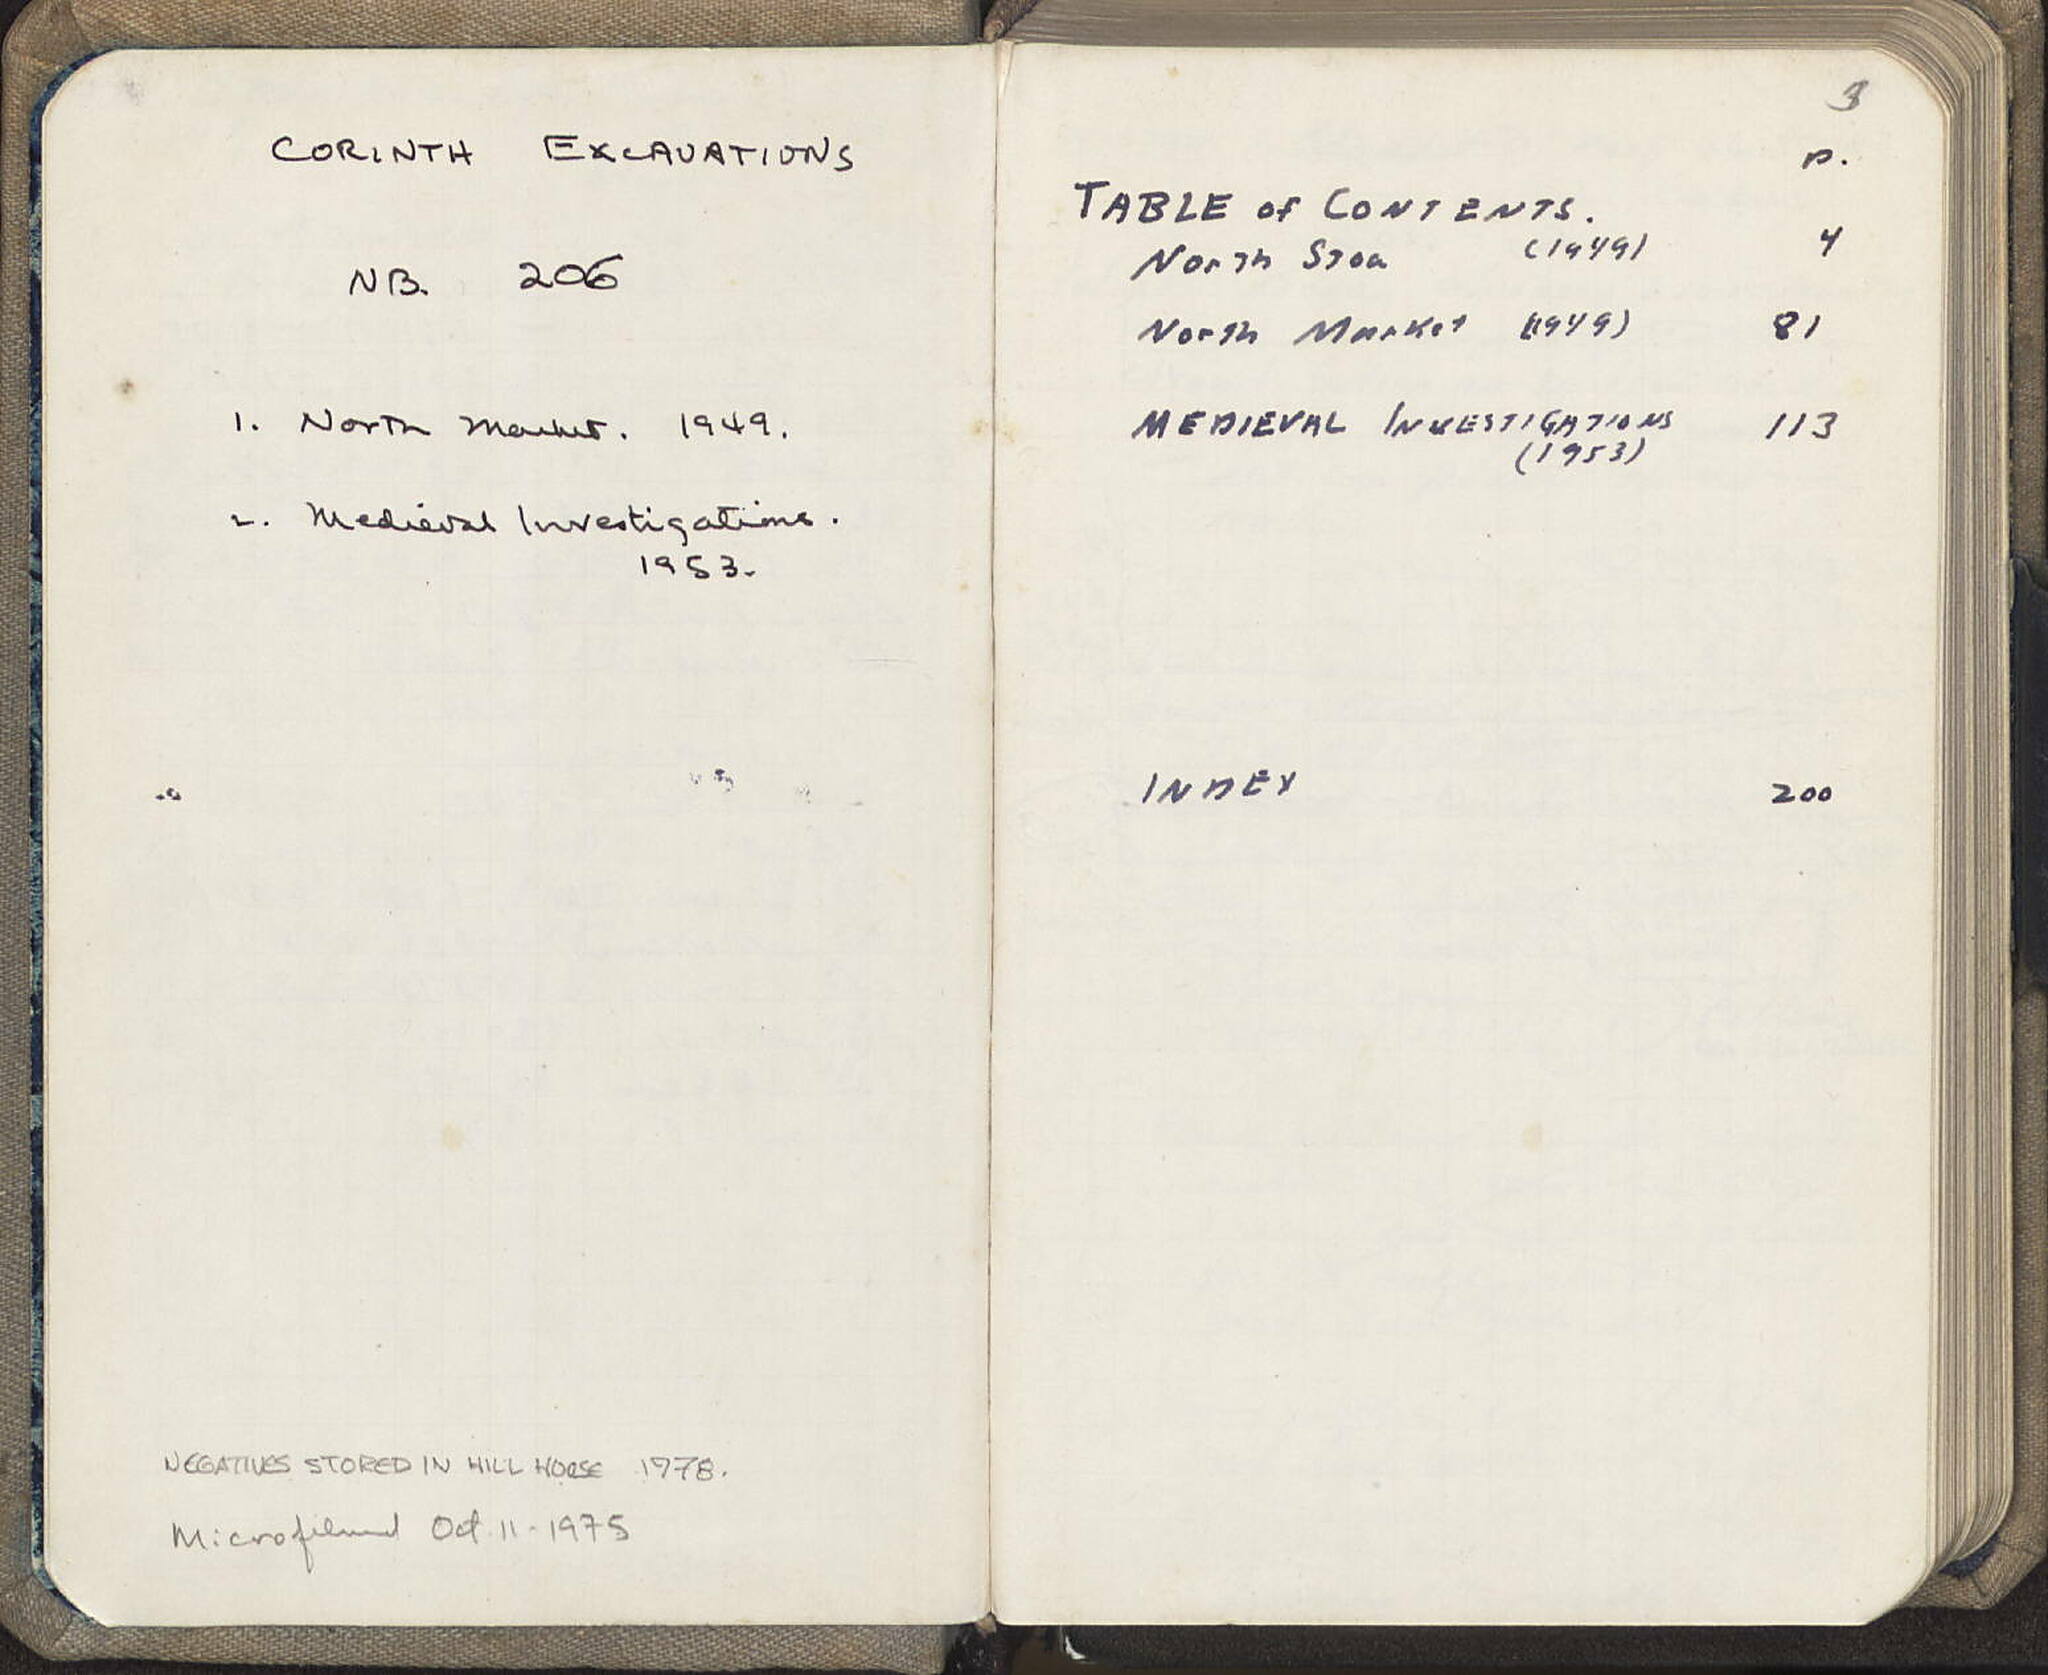 CORINTH EXCAVATIONS
NB. 206
1. North Market. 1949.
2. Medieval Investigations.
1953.
NEGATIVES STORED IN HILL HOUSE 1978.
Microfilmed Oct. 11 - 1975
3
p.
TABLE of CONTENTS.
North Stoa (1949) 4
North Market (1949) 81
MEDIEVAL INVESTIGATIONS 113
(1953)
INDEX 200